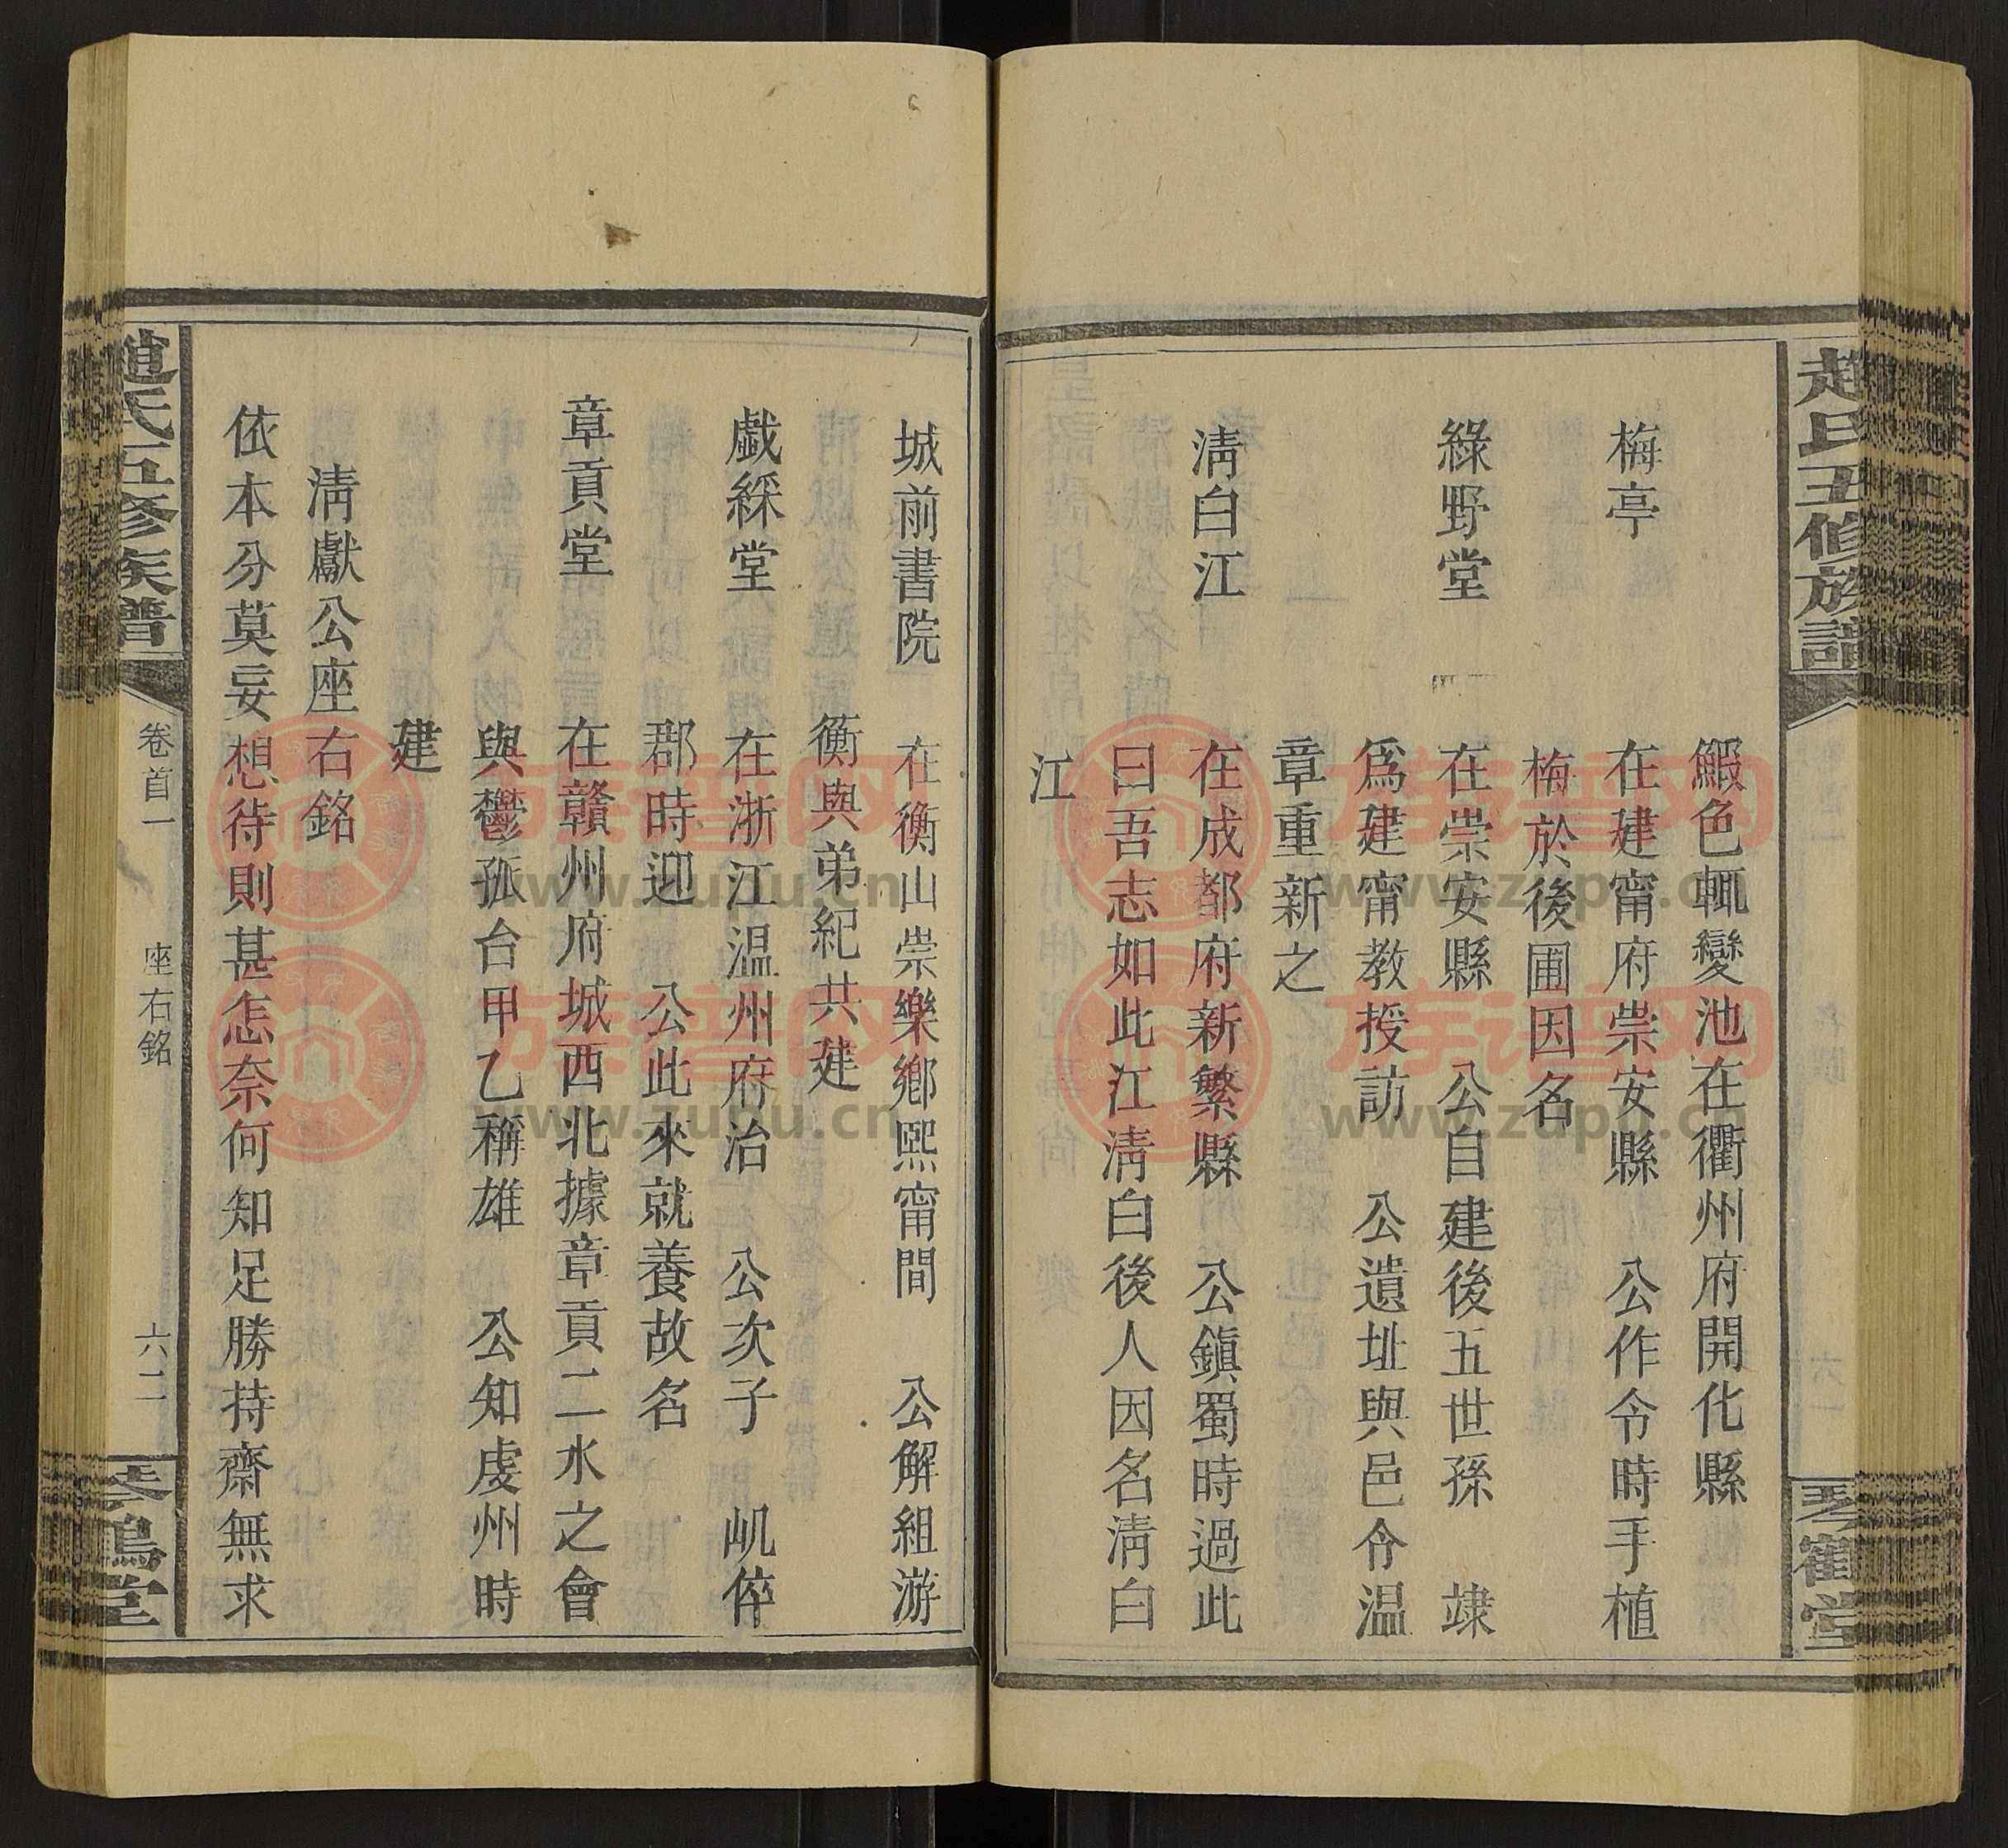 趙氏五修族譜
琴鶴堂
鰕色輒變池在衢州府開化縣
梅亭 在建甯府崇安縣 公作令時手植
梅於後圃因名
綠野堂 在崇安縣 公自建後五世孫 竦
爲建甯教授訪 公遺址與邑令温
章重新之
淸白江 在成都府新繁縣 公鎭蜀時過此
曰吾志如此江淸白後人因名淸白
江
城前書院 在衡山崇樂鄉熙甯間 公解組游
衡與弟紀共建
戲綵堂 在浙江温州府治 公次子 屼倅
郡時迎 公此來就養故名
章貢堂 在贛州府城西北據章貢二水之會
與鬱孤台甲乙稱雄 公知虔州時
建
淸獻公座右銘
依本分莫妄想待則甚怎奈何知足勝持齋無求
趙氏五修族譜
卷首一
座右銘
六二
琴鶴堂
族谱网
www.zupu.cn
族谱网
www.zupu.cn
族谱网
www.zupu.cn
族谱网
www.zupu.cn